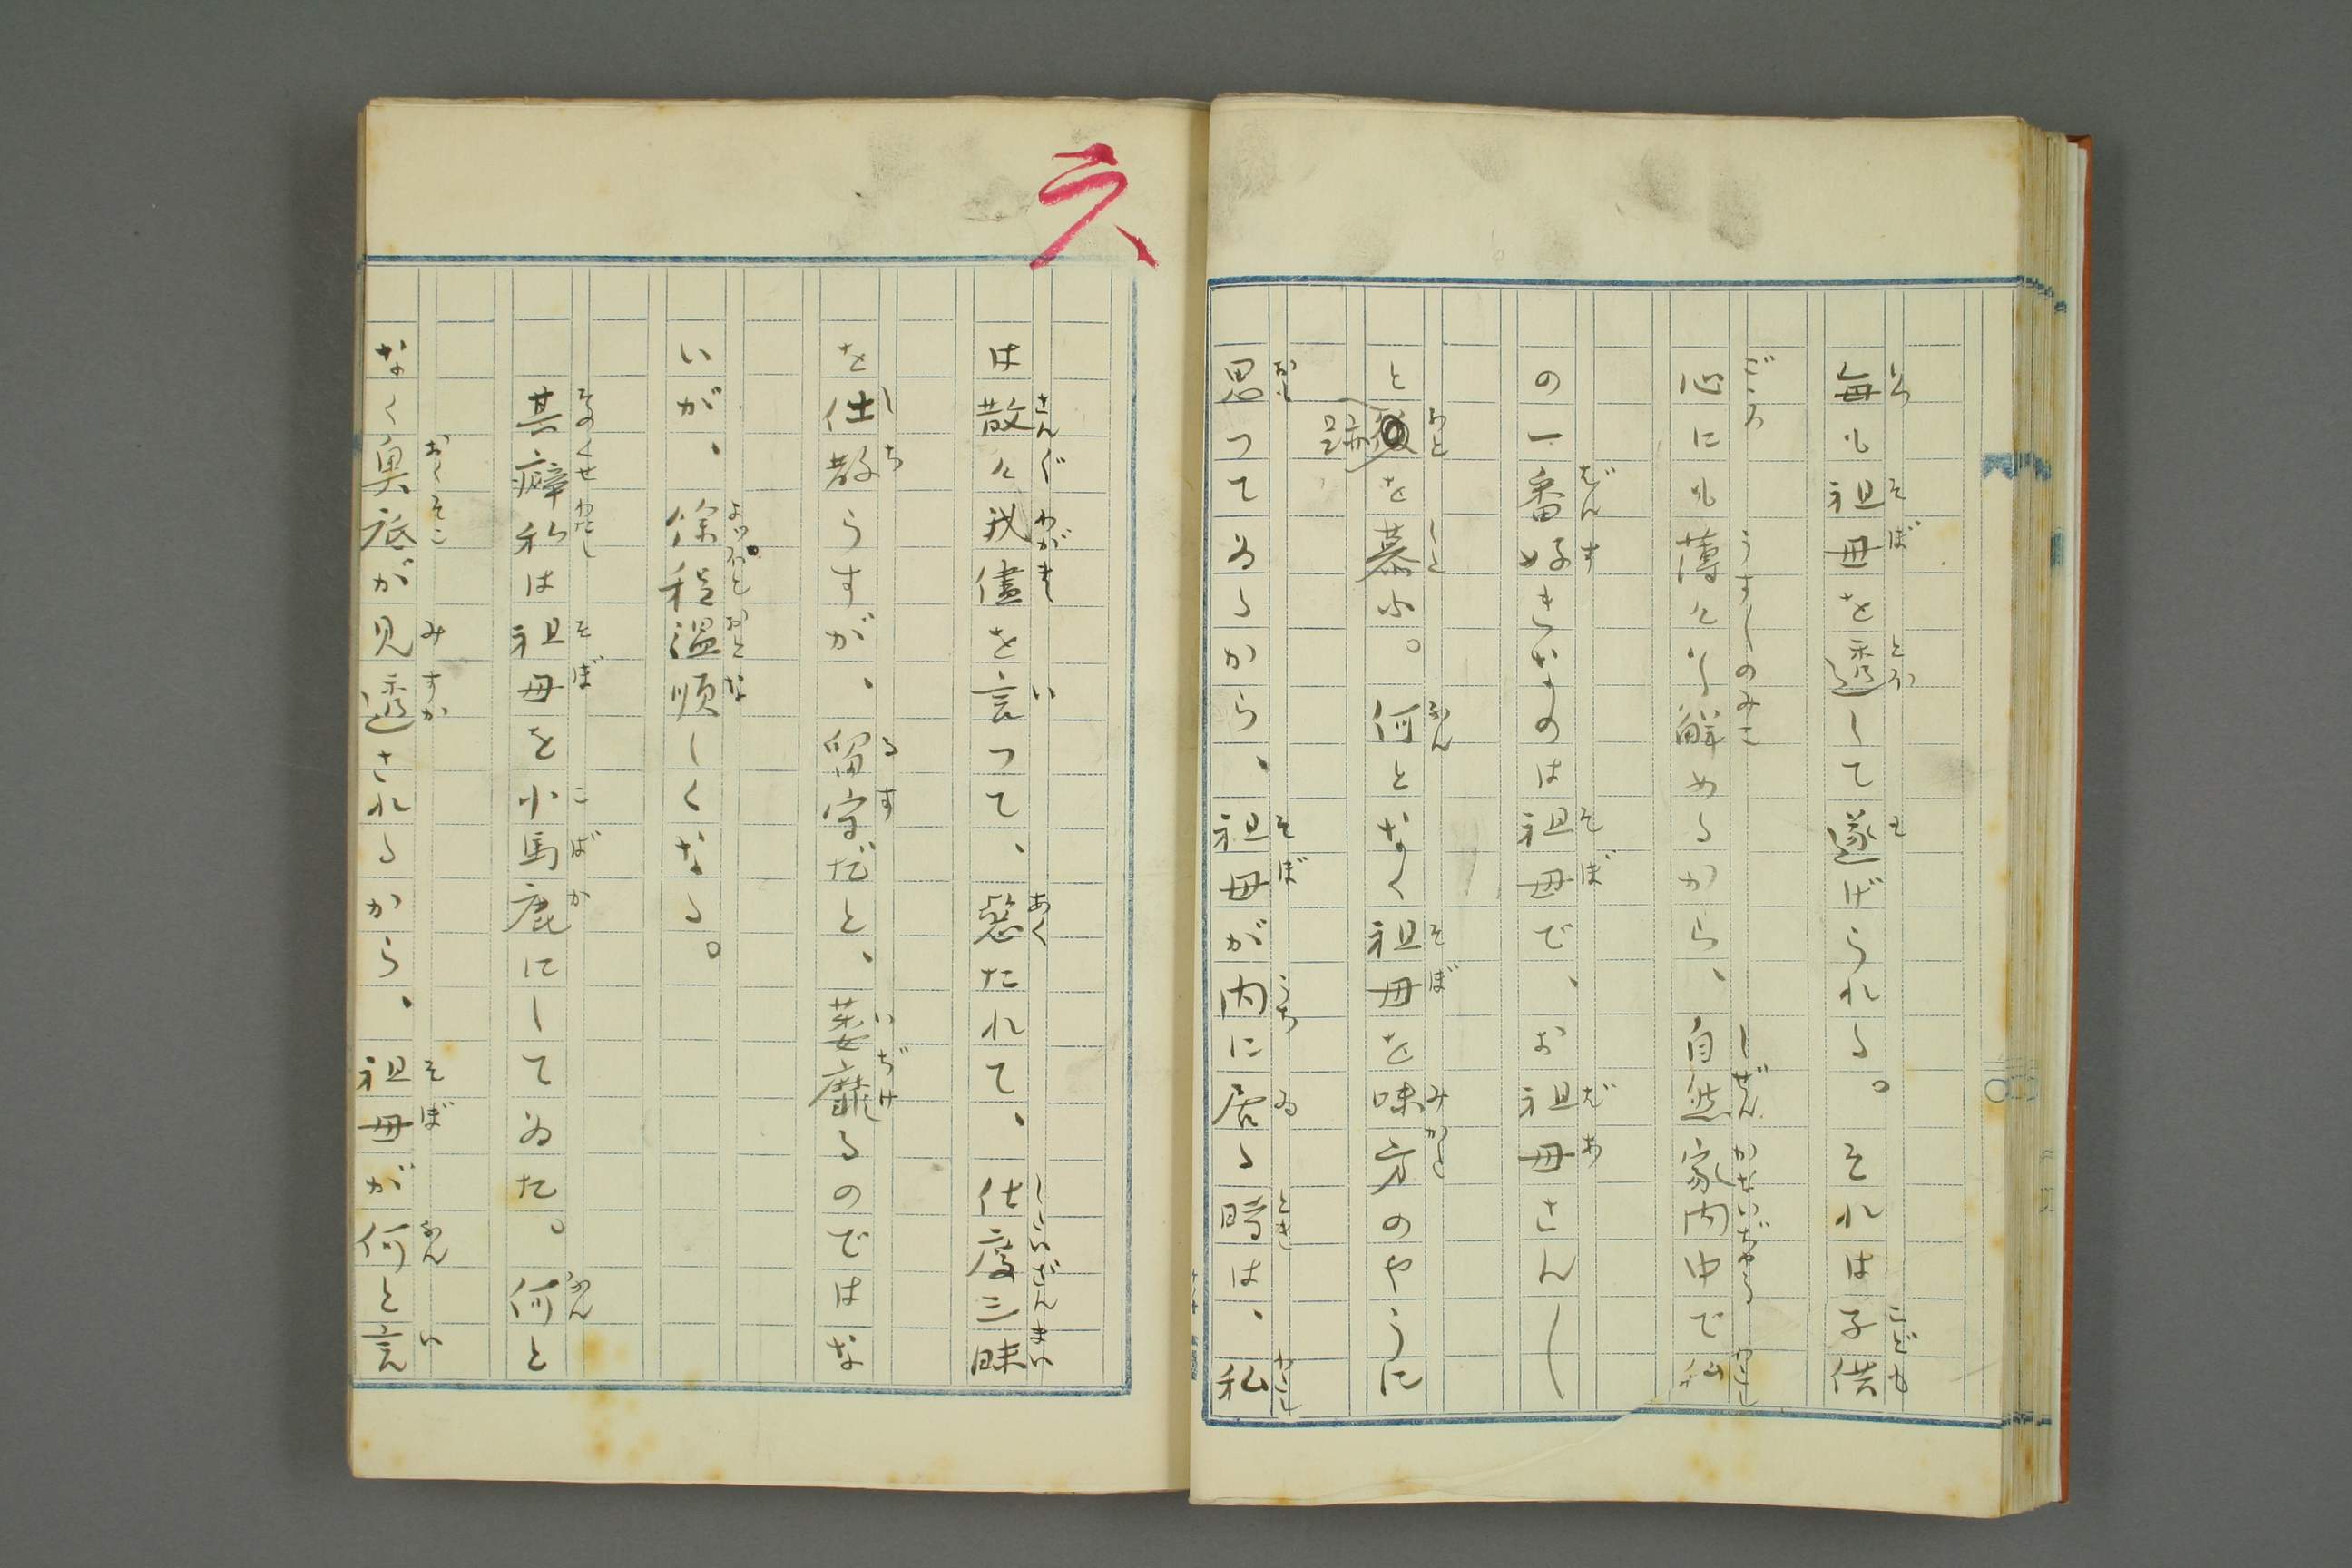 毎も祖母を透して遂げられる。それは子供
心にも薄々り解めるから、自然家内中で私
の一番好きなのは祖母で、お祖母さんし
と跡を慕ふ。何となく祖母を味方のやうに
思つてゐるから、祖母が内に居る時は、私
六
は散々我儘を言つて、慾たれて、仕度三昧
を仕散らすが、留守だと、萎靡るのではな
いが、余程温順しくなる。
其癖私は祖母を小馬鹿にしてゐた。何と
なく奥底が見透されるから、祖母が何と言